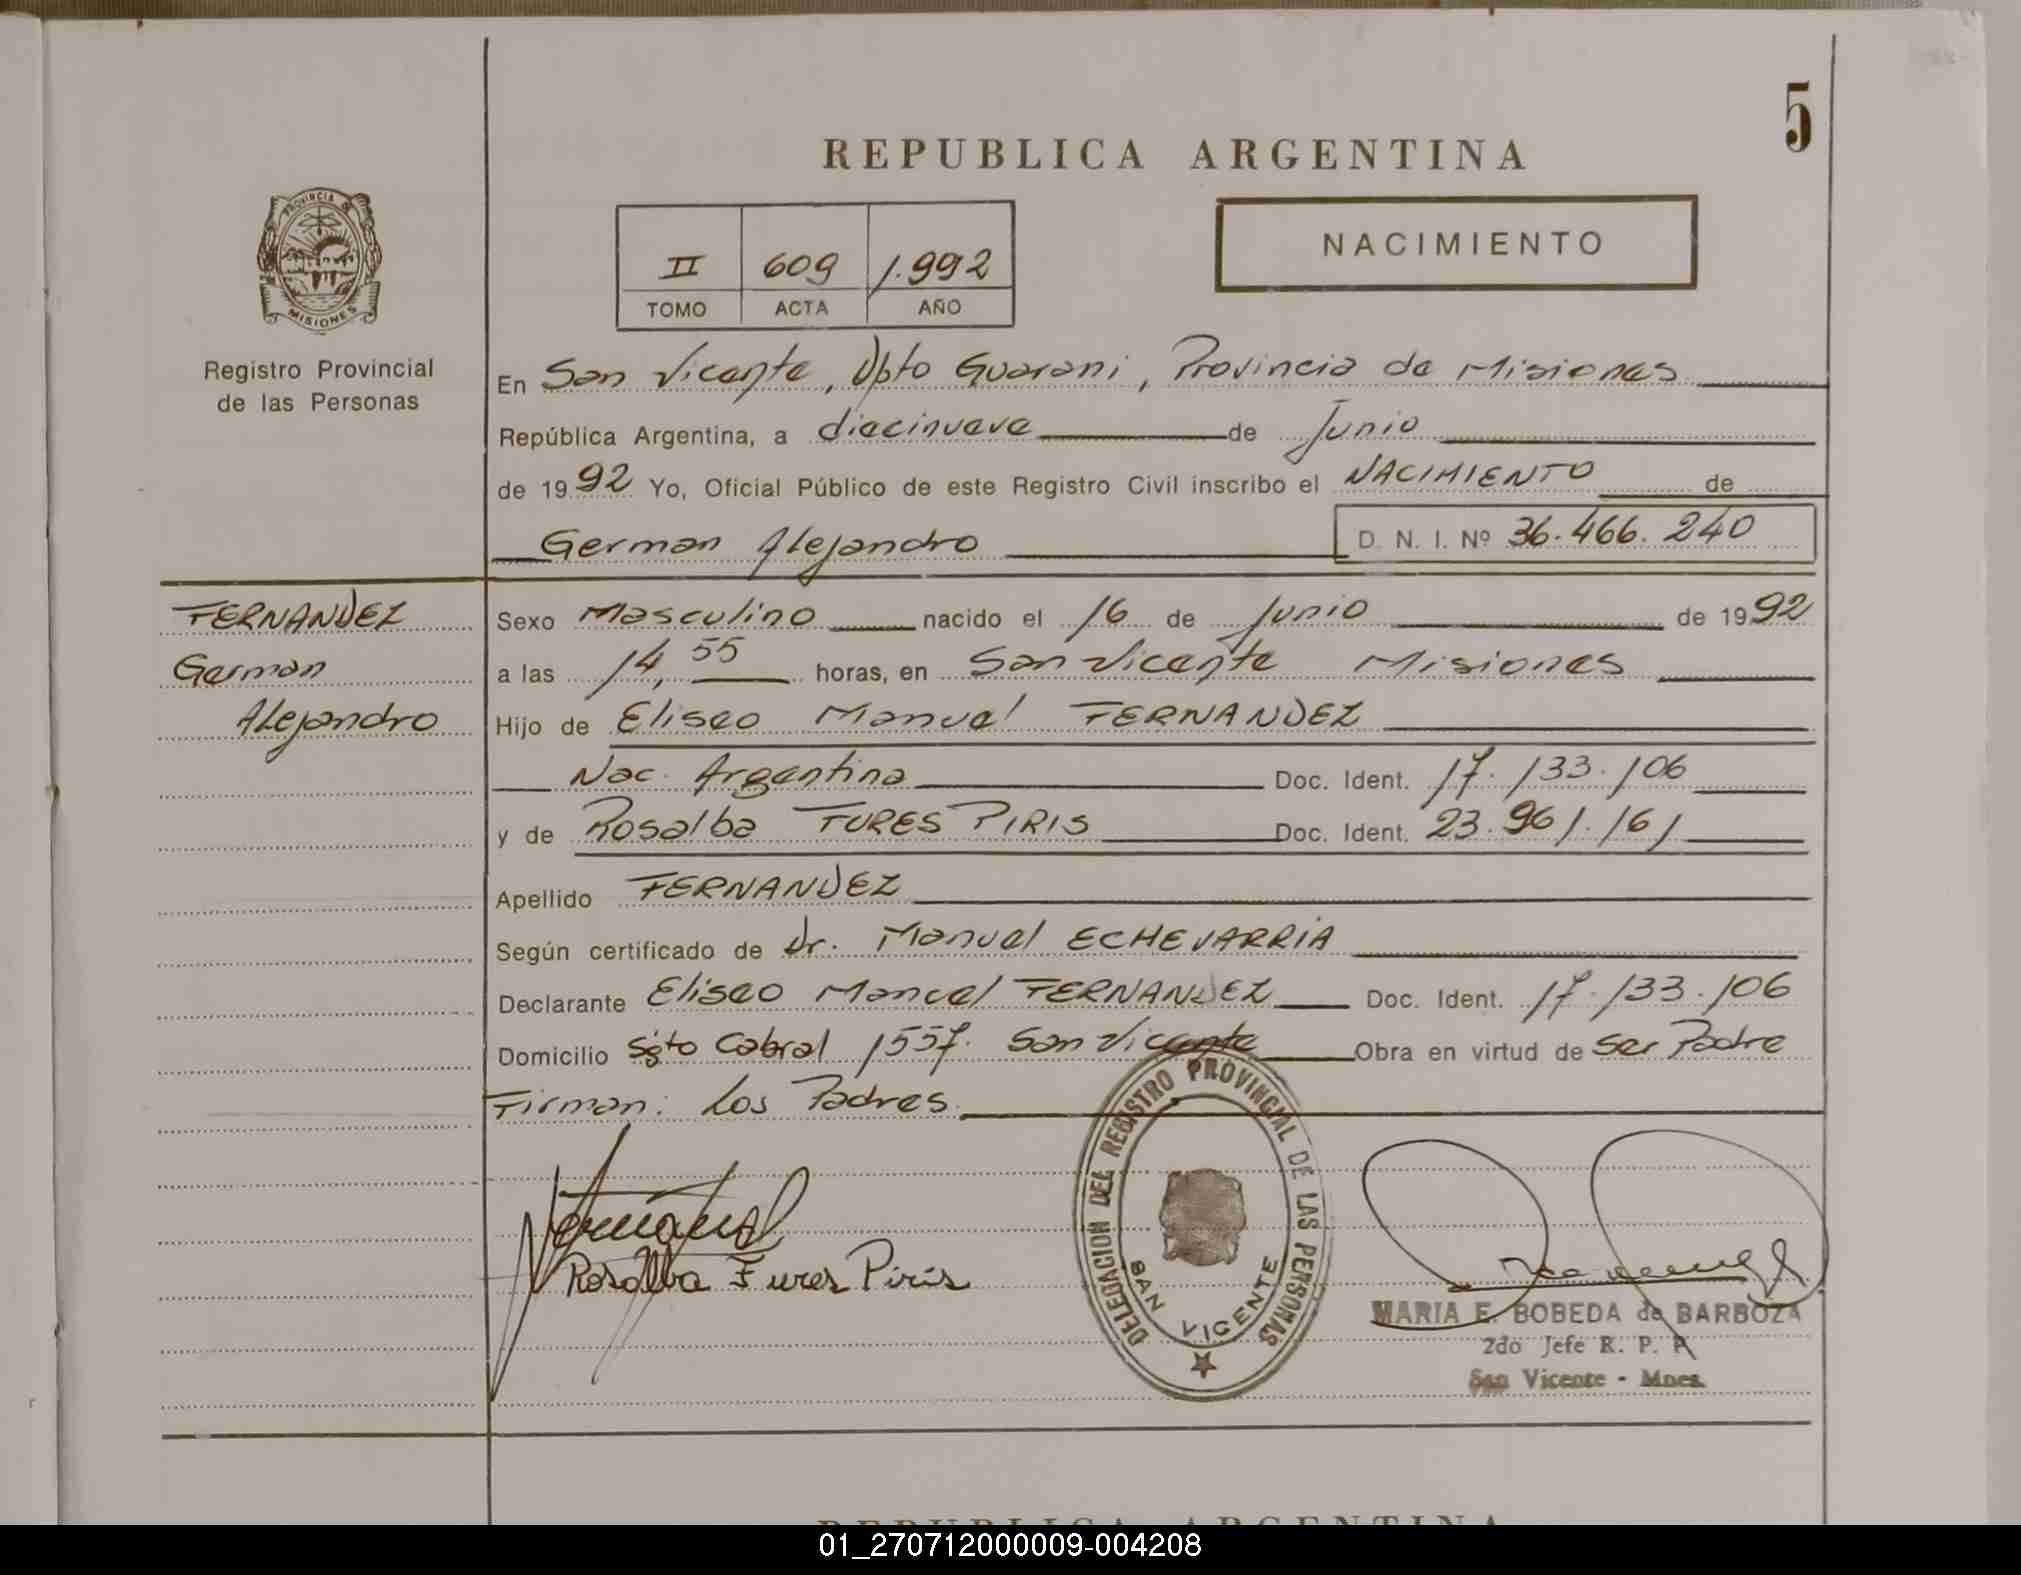 5
REPUBLICA ARGENTINA
PROVINCIA DE
MISIONES
Registro Provincial
de las Personas
II 609 1.992
TOMO ACTA AÑO
NACIMIENTO
En San Vicente, Dpto Guarani, Provincia de Misiones
República Argentina, a diecinueve de Junio
de 1992 Yo, Oficial Público de este Registro Civil inscribo el NACIMIENTO de
German Alejandro D. N. I. Nº 36.466.240
FERNANDEZ
German
Alejandro
Sexo Masculino nacido el 16 de Junio de 1992
a las 14,55 horas, en San Vicente Misiones
Hijo de Eliseo Manuel FERNANDEZ
Nac. Argentina Doc. Ident. 17.133.106
y de Rosalba FURES PIRIS Doc. Ident. 23.961.161
Apellido FERNANDEZ
Según certificado de Dr. Manuel ECHEVARRIA
Declarante Eliseo Manuel FERNANDEZ Doc. Ident. 17.133.106
Domicilio Sgto Cabral 1557. San Vicente Obra en virtud de Ser Padre
Firman: Los Padres
Rosalba Fures Piris
DELEGACION DEL REGISTRO PROVINCIAL DE LAS PERSONAS
SAN VICENTE
MARIA E. BOBEDA de BARBOZA
2do Jefe R. P. P.
San Vicente - Mnes.
REPUBLICA ARGENTINA
01_270712000009-004208